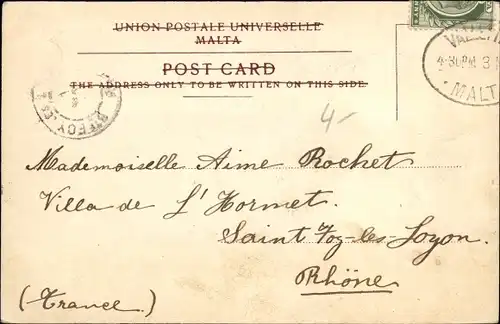 UNION POSTALE UNIVERSELLE
MALTA
POST CARD
THE ADDRESS ONLY TO BE WRITTEN ON THIS SIDE.
VALLETTA
4-30PM 31
MALT
STE FOY-LES
4-
Mademoiselle Aime Rochet
Villa de L'Hormet.
Saint Foy-les-Loyon.
Rhône
(France.)